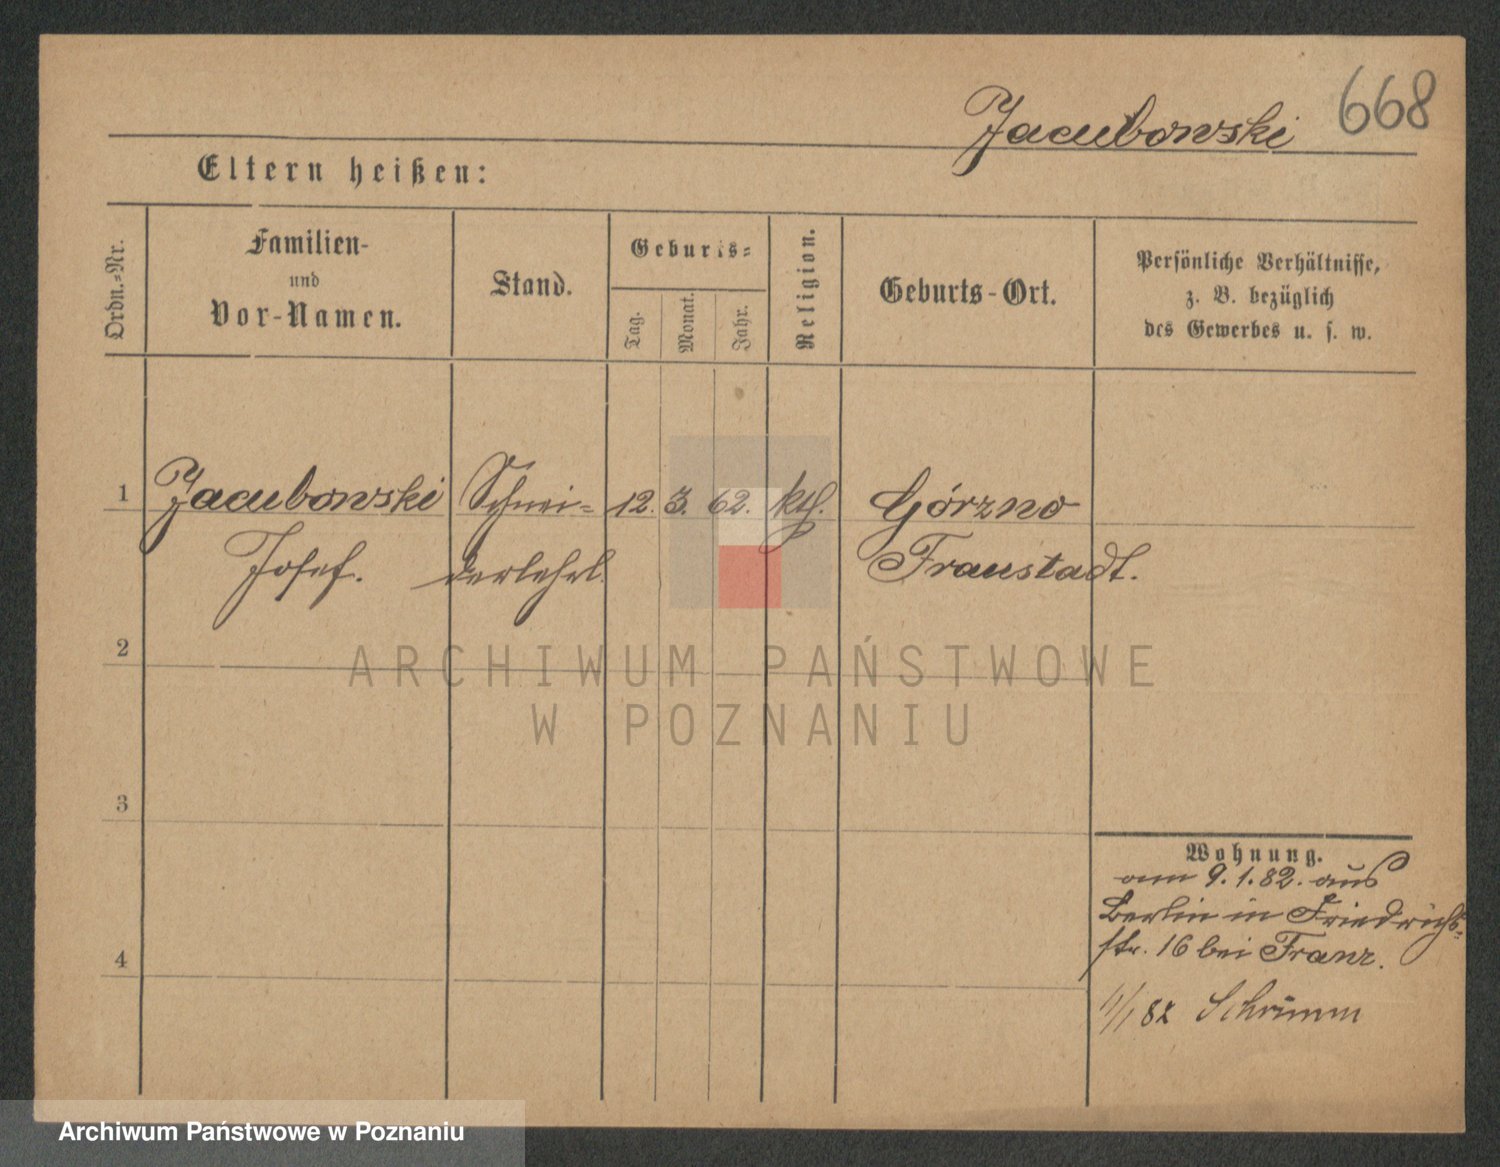 668
Jacubowski
Eltern heißen:
Ordn.-Nr.
Familien-
und
Vor-Namen.
Stand.
Geburts-
Tag.
Monat.
Jahr.
Religion.
Geburts-Ort.
Persönliche Verhältnisse,
z. B. bezüglich
des Gewerbes u. s. w.
1 Jacubowski Schnei= 12. 3. 62. kth. Górzno
Josef. derlehrl. Fraustadt.
2
ARCHIWUM PAŃSTWOWE
W POZNANIU
3
4
Wohnung.
am 9.1.82. aus
Berlin in Friedrichs-
str. 16 bei Franz.
/1 82 Schrimm
Archiwum Państwowe w Poznaniu